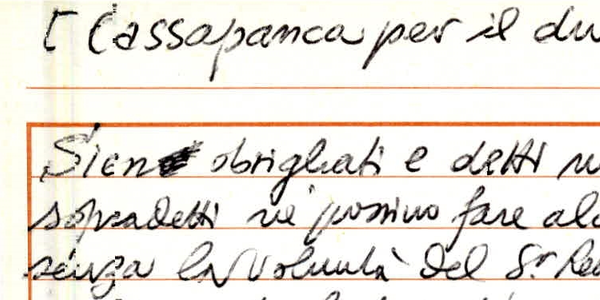 [ Cassapanca per il du
Sieno obrighati e detti
sopradetti né possino fare alc
senza la voluntà del S.r Re